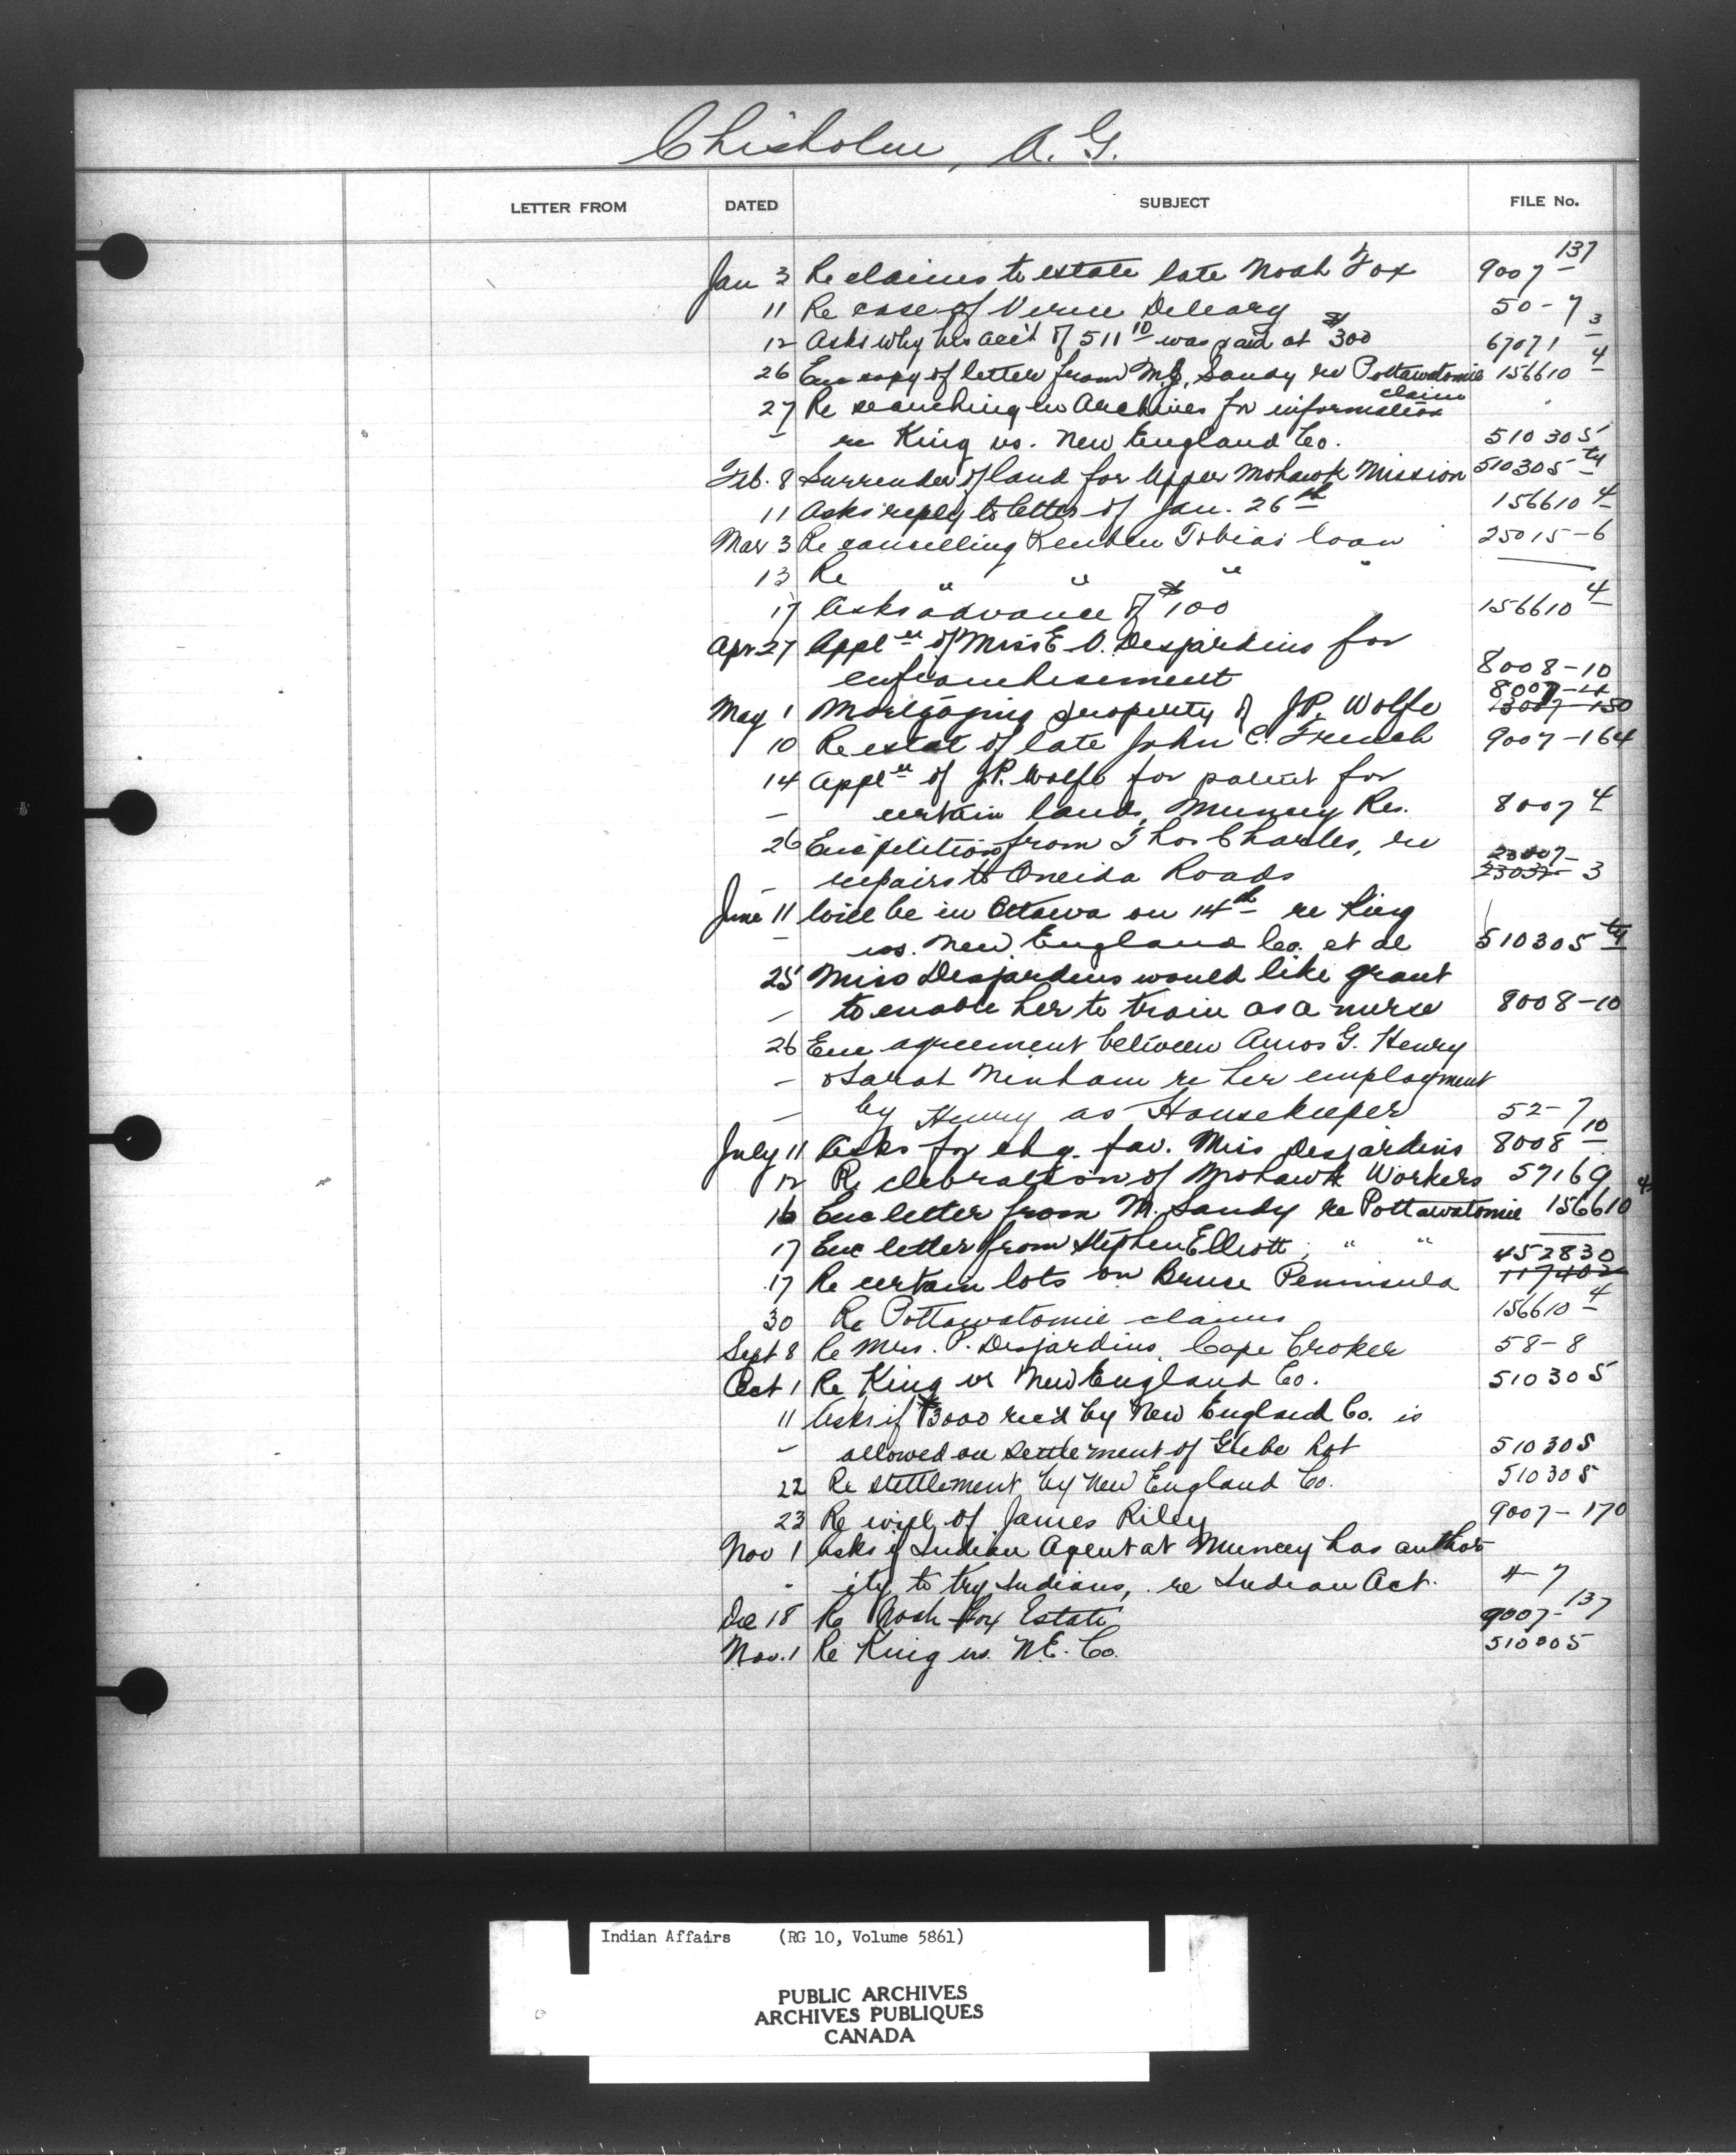 Chisholm, A. G.
LETTER FROM DATED SUBJECT FILE No.
Jan 3 Re claims to estate late Noah Fox 9007-137
11 Re case of Verne Deleary 50-7
12 Asks why his acc't of 511 10 was paid at $300 67071 3
26 Enc copy of letter from M.J. Sandy re Pottawatomie claim 156610 4
27 Re searching in Archives for information
- re King vs. New England Co. 510305
Feb. 8 Surrender of land for Upper Mohawk Mission 510305 ty
11 Asks reply to letter of Jan. 26th 156610 4
Mar 3 Re cancelling Reuben Tobias loan 25015-6
13 Re " " " "
17 Asks advance of $100 156610 4
Apr 27 Appl'n of Miss E. O. Desjardins for
enfranchisement 8008-10
May 1 Mortgaging property of J.P. Wolfe 8007-4 23007-150
10 Re estat of late John C. French 9007-164
14 Appl'n of J.P. Wolfe for patent for
- certain lands, Muncey Res. 8007 4
26 Enc petition from Thos Charles, re
- repairs to Oneida Roads 23007- 23032- 3
June 11 Will be in Ottawa on 14th re King
- vs. New England Co. et al 510305 ty
25 Miss Desjardins would like grant
- to enable her to train as a nurse 8008-10
26 Enc agreement between Amos G. Henry
- & Sarah Ninham re her employment
- by Henry as Housekeeper 52-7
July 11 Asks for chq. fav. Miss Desjardins 8008 10
12 Re clebration of Mohawk Workers 57169
16 Enc letter from M. Sandy re Pottawatomie 156610 4
17 Enc letter from Stephen Elliott, " "
17 Re certain lots on Bruce Peninsula 452830 117402
30 Re Pottawatomie claims 156610 4
Sept 8 Re Mrs. P. Desjardins, Cape Croker 58-8
Oct 1 Re King vs New England Co. 510305
11 Asks if $3000 rec'd by New England Co. is
- allowed on settlement of Glebe Lot 510305
22 Re stettlement by New England Co. 510305
23 Re will of James Riley 9007-170
Nov 1 Asks if Indian Agent at Muncey has author-
- ity to try Indians, re Indian Act. 4-7
Dec 18 Re Noah Fox Estate 9007-137
Nov. 1 Re King vs. N.E. Co. 510305
Indian Affairs (RG 10, Volume 5861)
PUBLIC ARCHIVES
ARCHIVES PUBLIQUES
CANADA